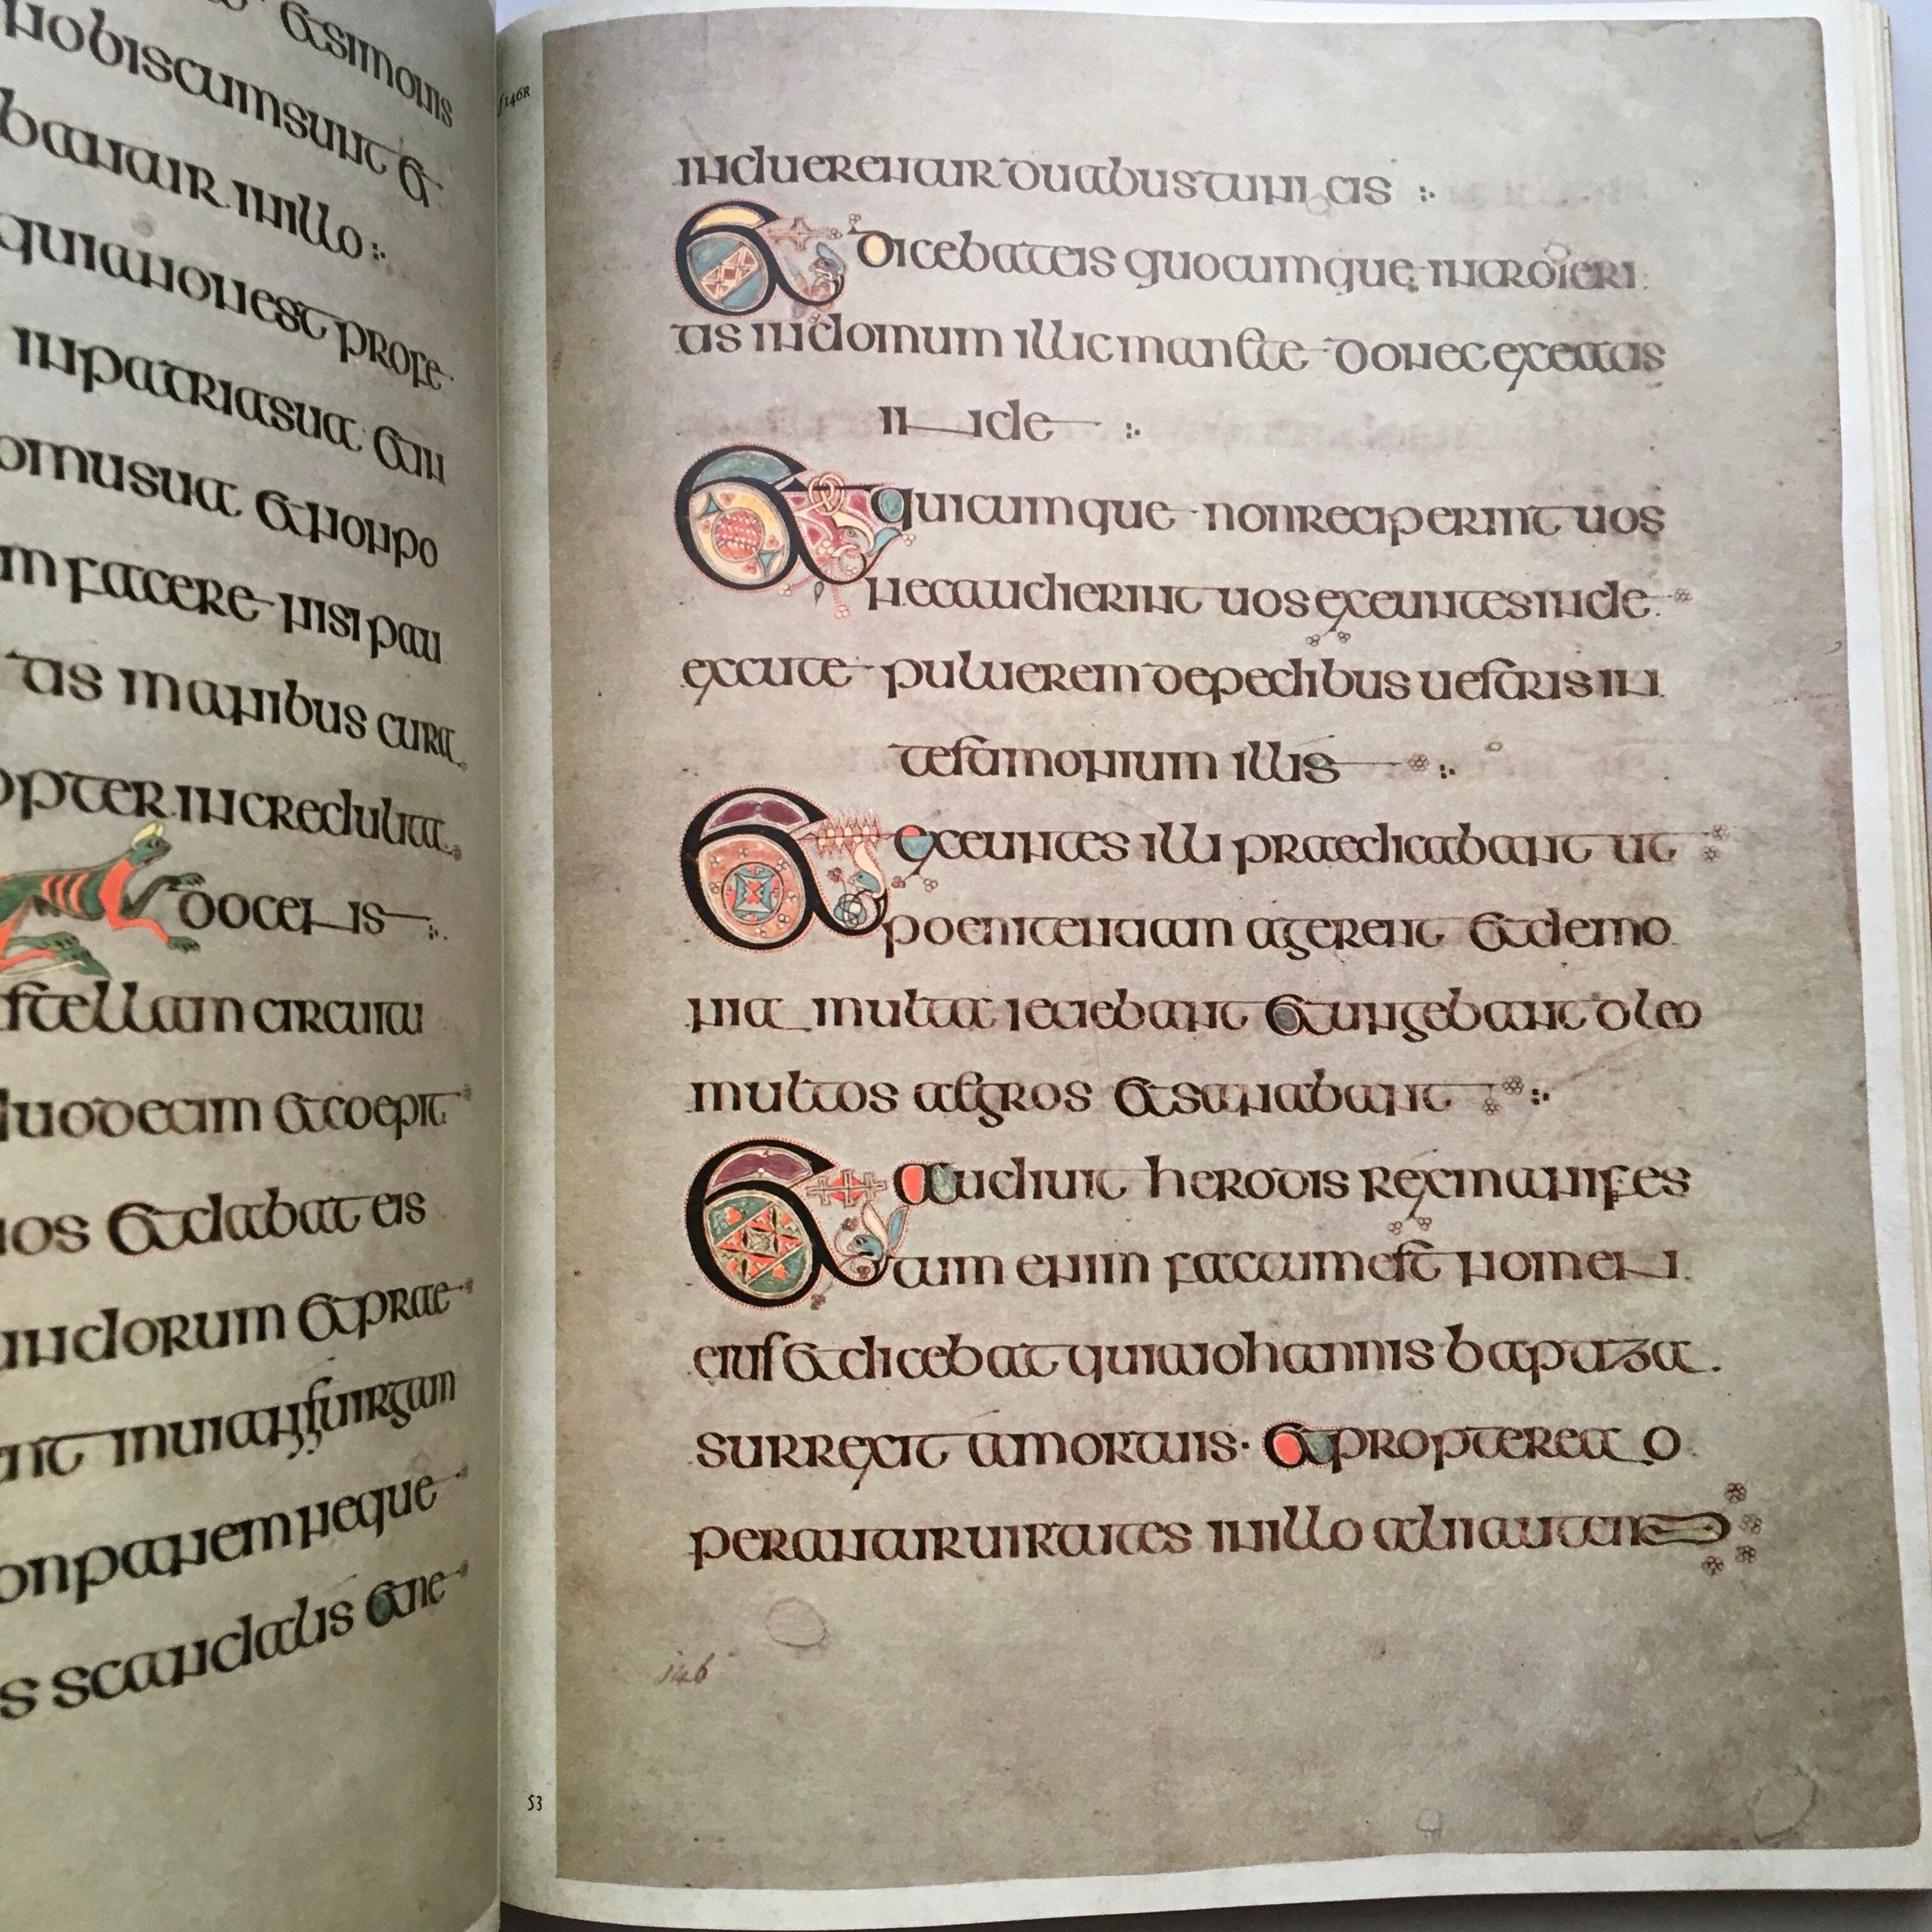 & simonis
nobiscum sunt &
bantur in illo
quia non est profe
in patria sua & in
omu sua & non po
m facere nisi pau
tis manibus cura
opter incredulita
docens
stella in circuitu
duodecim & coepit
nos & dabat eis
undorum & prae
on panem neque
s scandalis & ne
f146R
induerentur duabus tunicis
& dicebat eis quocumque introieri
tis in domum illic manete donec exeatis
inde
& quicumque non reciperint uos
nec audierint uos exeuntes inde
excutite puluerem de pedibus uestris in
testimonium illis
& exeuntes illi praedicabant ut
poenitentiam agerent & demo
nia multa ieciebant & ungebant oleo
multos aegros & sanabant
& audiuit herodis rex manifes
tum enim factum est nomen
eius & dicebat quia iohannis baptiza
surrexit a mortuis · & propterea o
perantur uirtutes in illo alii autem
146
53